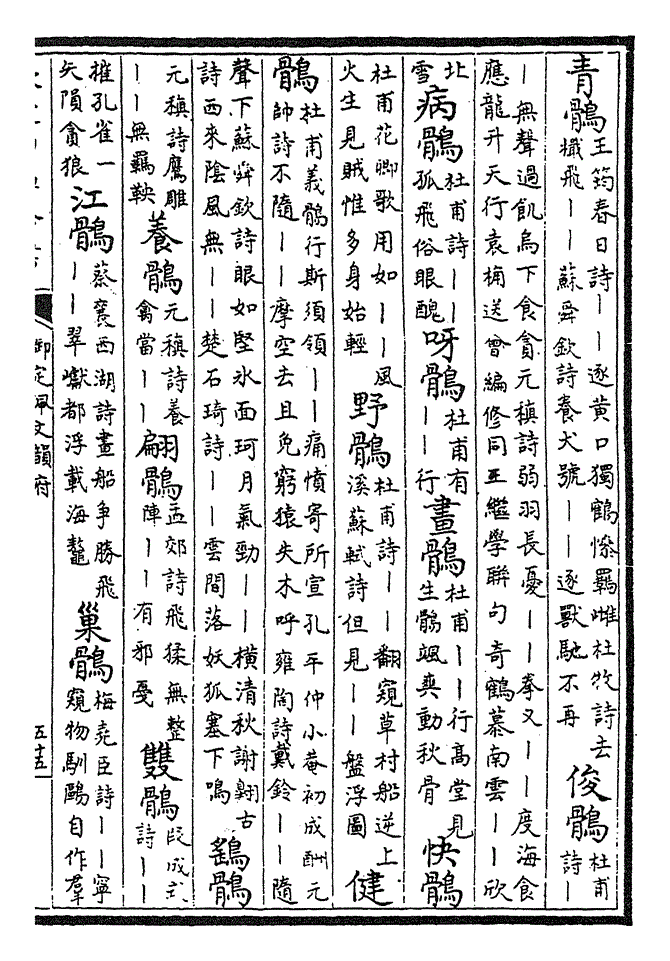 青鶻王筠春日詩丨丨逐黃口獨鶴慘羈雌杜牧詩去
檝飛丨丨蘇舜欽詩養犬號丨丨逐獸馳不再
俊鶻杜甫
詩丨
丨無聲過飢烏下食貪元稹詩弱羽長憂丨丨拳又丨丨度海食
應龍升天行袁桷送曾編修同王繼學聯句奇鶴慕南雲丨丨欣
北
雪
病鶻杜甫詩丨丨
孤飛俗眼醜
呀鶻杜甫有
丨丨行
畫鶻杜甫丨丨行高堂見
生鶻颯爽動秋骨
快鶻
杜甫花卿歌用如丨丨風
火生見賊惟多身始輕
野鶻杜甫詩丨丨翻窺草村船逆上
溪蘇軾詩但見丨丨盤浮圖
健
鶻杜甫義鶻行斯須領丨丨痛憤寄所宣孔平仲小菴初成酬元
帥詩不隨丨丨摩空去且免窮猿失木呼雍陶詩戴鈴丨丨隨
聲下蘇舜欽詩眼如堅氷面珂月氣勁丨丨橫清秋謝翱古
詩西來陰風無丨丨楚石琦詩丨丨雲間落妖狐塞下鳴
鷂鶻
元稹詩鷹雕
丨丨無羈鞅
養鶻元稹詩養
禽當丨丨
翩鶻孟郊詩飛猱無整
陣丨丨有邪戞
雙鶻段成式
詩丨丨
摧孔雀一
矢隕貪狼
江鶻蔡襄西湖詩畫船争勝飛
丨丨翠巘都浮載海鼇
巢鶻梅堯臣詩丨丨寧
窺物馴鷗自作羣
御定佩文韻府
五十五